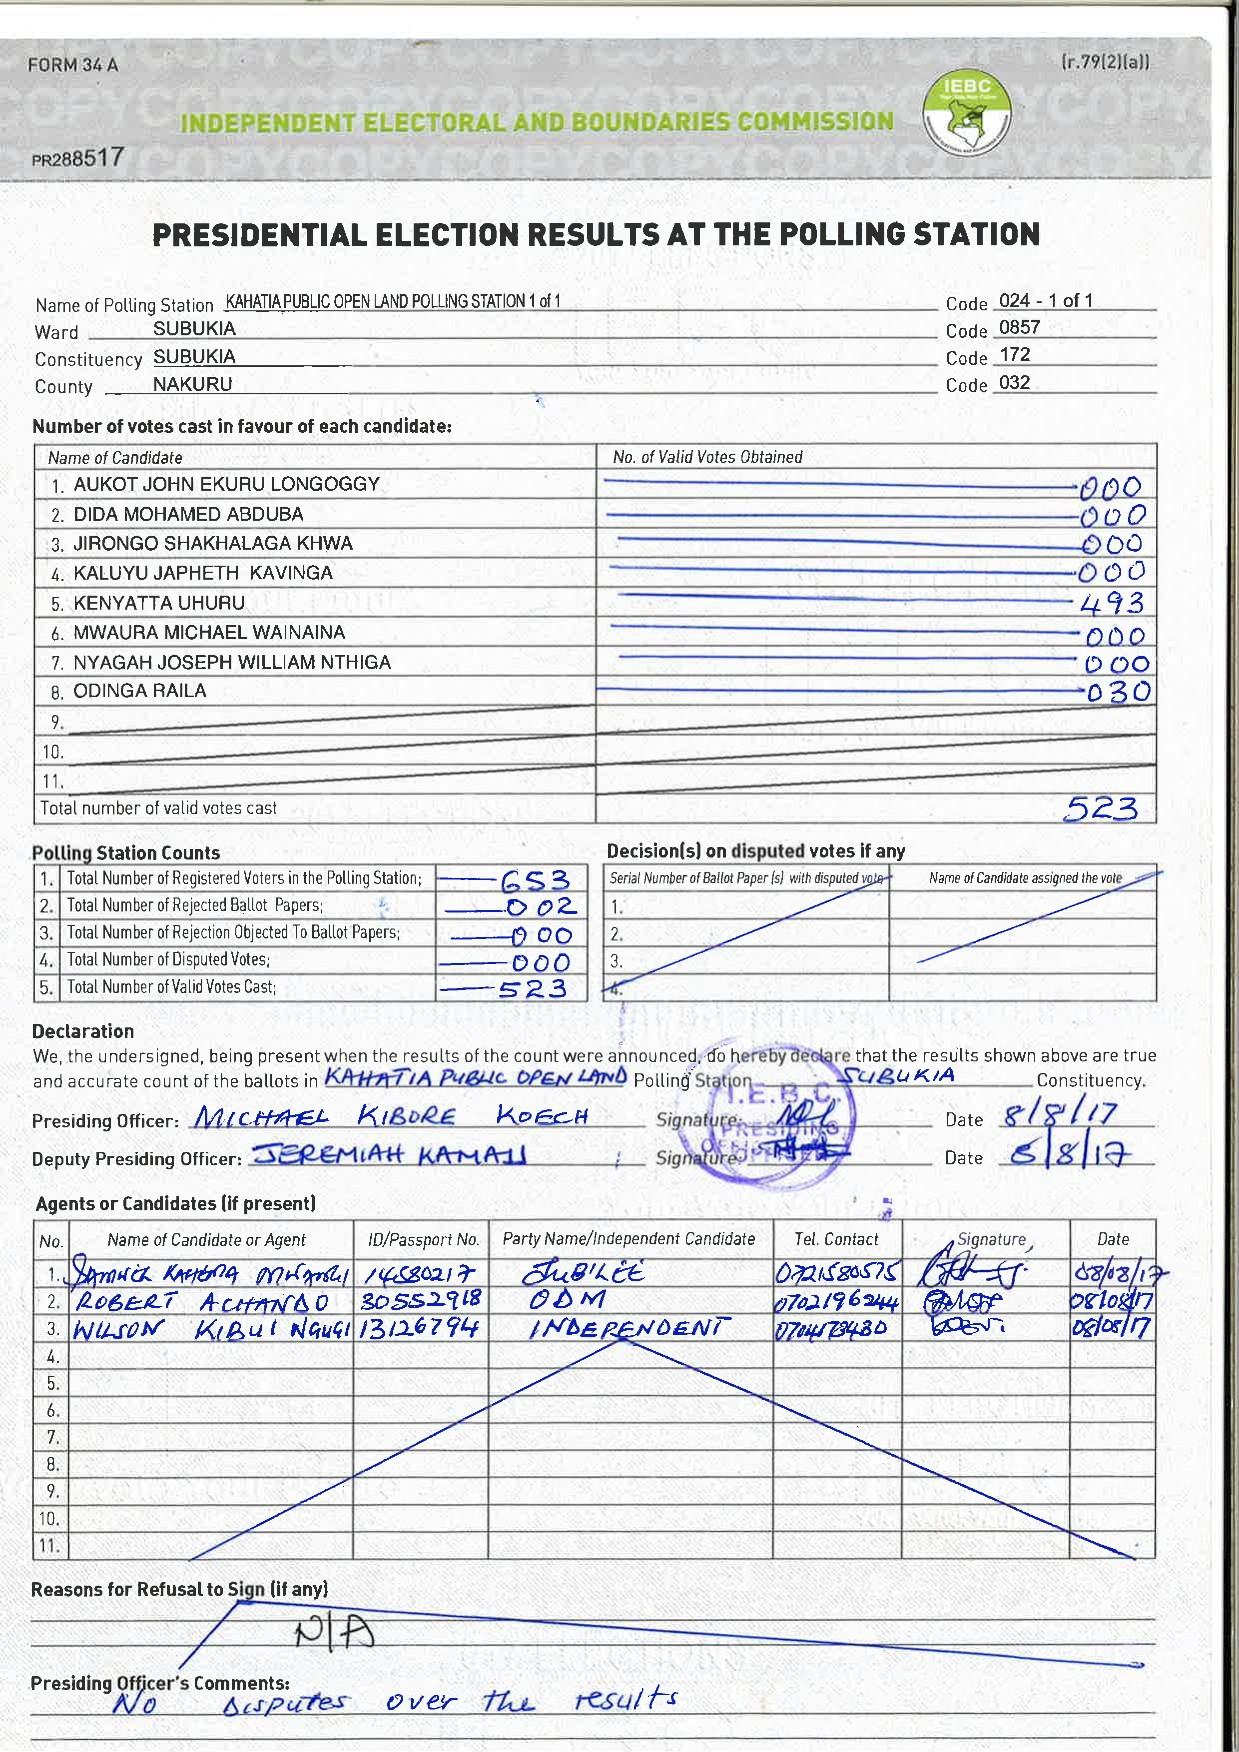 FORM 34 A
(r.79(2)(a))
IEBC
INDEPENDENT ELECTORAL AND BOUNDARIES COMMISSION
PR288517
PRESIDENTIAL ELECTION RESULTS AT THE POLLING STATION
Name of Polling Station KAHATIA PUBLIC OPEN LAND POLLING STATION 1 of 1 Code 024 - 1 of 1
Ward SUBUKIA Code 0857
Constituency SUBUKIA Code 172
County NAKURU Code 032
Number of votes cast in favour of each candidate:
Name of Candidate No. of Valid Votes Obtained
1. AUKOT JOHN EKURU LONGOGGY 000
2. DIDA MOHAMED ABDUBA 000
3. JIRONGO SHAKHALAGA KHWA 000
4. KALUYU JAPHETH KAVINGA 000
5. KENYATTA UHURU 493
6. MWAURA MICHAEL WAINAINA 000
7. NYAGAH JOSEPH WILLIAM NTHIGA 000
8. ODINGA RAILA 030
9.
10.
11.
Total number of valid votes cast 523
Polling Station Counts
1. Total Number of Registered Voters in the Polling Station; 653
2. Total Number of Rejected Ballot Papers; 002
3. Total Number of Rejection Objected To Ballot Papers; 000
4. Total Number of Disputed Votes; 000
5. Total Number of Valid Votes Cast; 523
Decision(s) on disputed votes if any
Serial Number of Ballot Paper (s) with disputed vote Name of Candidate assigned the vote
1.
2.
3.
4.
Declaration
We, the undersigned, being present when the results of the count were announced, do hereby declare that the results shown above are true
and accurate count of the ballots in KAHATIA PUBLIC OPEN LAND Polling Station SUBUKIA Constituency.
I.E.B.C.
PRESIDING
OFFICER
Presiding Officer: MICHAEL KIBORE KOECH Signature: Date 8/8/17
Deputy Presiding Officer: JEREMIAH KAMAU Signature: Date 8/8/17
Agents or Candidates (if present)
No. Name of Candidate or Agent ID/Passport No. Party Name/Independent Candidate Tel. Contact Signature Date
1. 14580217 JUBILEE 0721580575 08/08/17
2. ROBERT ACHANDO 30552918 ODM 0702196244 08/08/17
3. WILSON KIBUI NGUGI 13126794 INDEPENDENT 08/08/17
4.
5.
6.
7.
8.
9.
10.
11.
Reasons for Refusal to Sign (if any)
N/A
Presiding Officer's Comments:
No disputes over the results